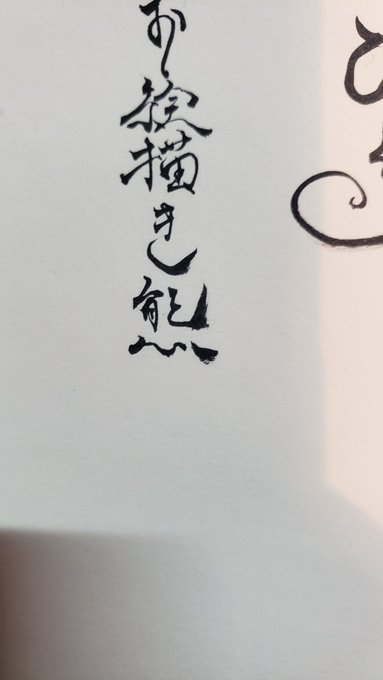 お絵描き熊